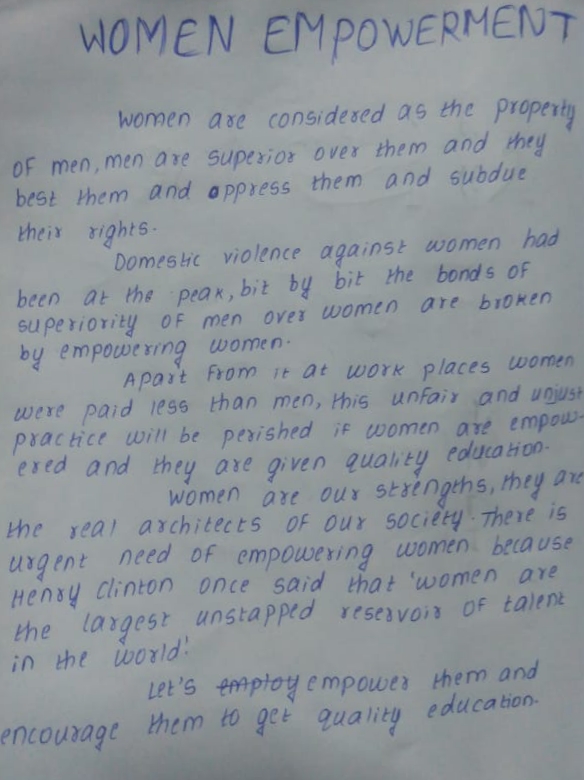 WOMEN EMPOWERMENT
Women are considered as the property
of men, men are superior over them and they
best them and oppress them and subdue
their rights.
Domestic violence against women had
been at the peak, bit by bit the bonds of
superiority of men over women are broken
by empowering women.
Apart from it at work places women
were paid less than men, this unfair and unjust
practice will be perished if women are empow-
ered and they are given quality education.
Women are our strengths, they are
the real architects of our society. There is
urgent need of empowering women because
Henry Clinton once said that 'women are
the largest unstapped reservoir of talent
in the world!
Let's employ empower them and
encourage them to get quality education.